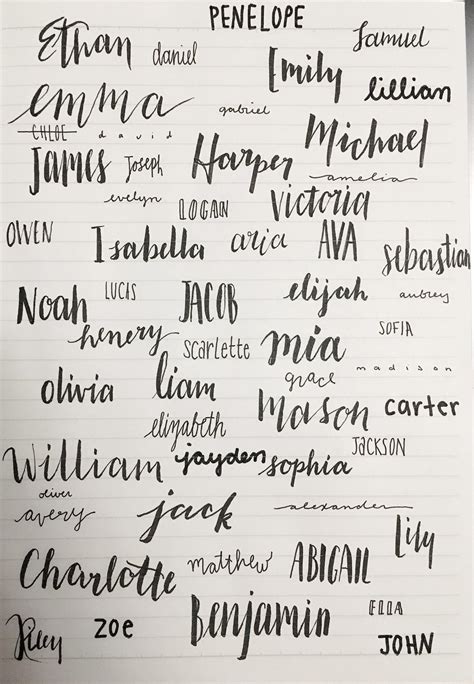 PENELOPE
Ethan daniel Samuel
Emily lillian
emma gabriel
CHLOE david Michael
James Joseph Harper amelia
evelyn LOGAN victoria
OWEN Isabella aria AVA sebastian
Noah LUCIS JACOB elijah aubrey
henery scarlette mia SOFIA
olivia liam grace madison
elizabeth Mason carter
William jayden sophia JACKSON
oliver
avery jack alexander Lily
Charlotte matthew ABIGAIL
Riley zoe Benjamin ELLA JOHN